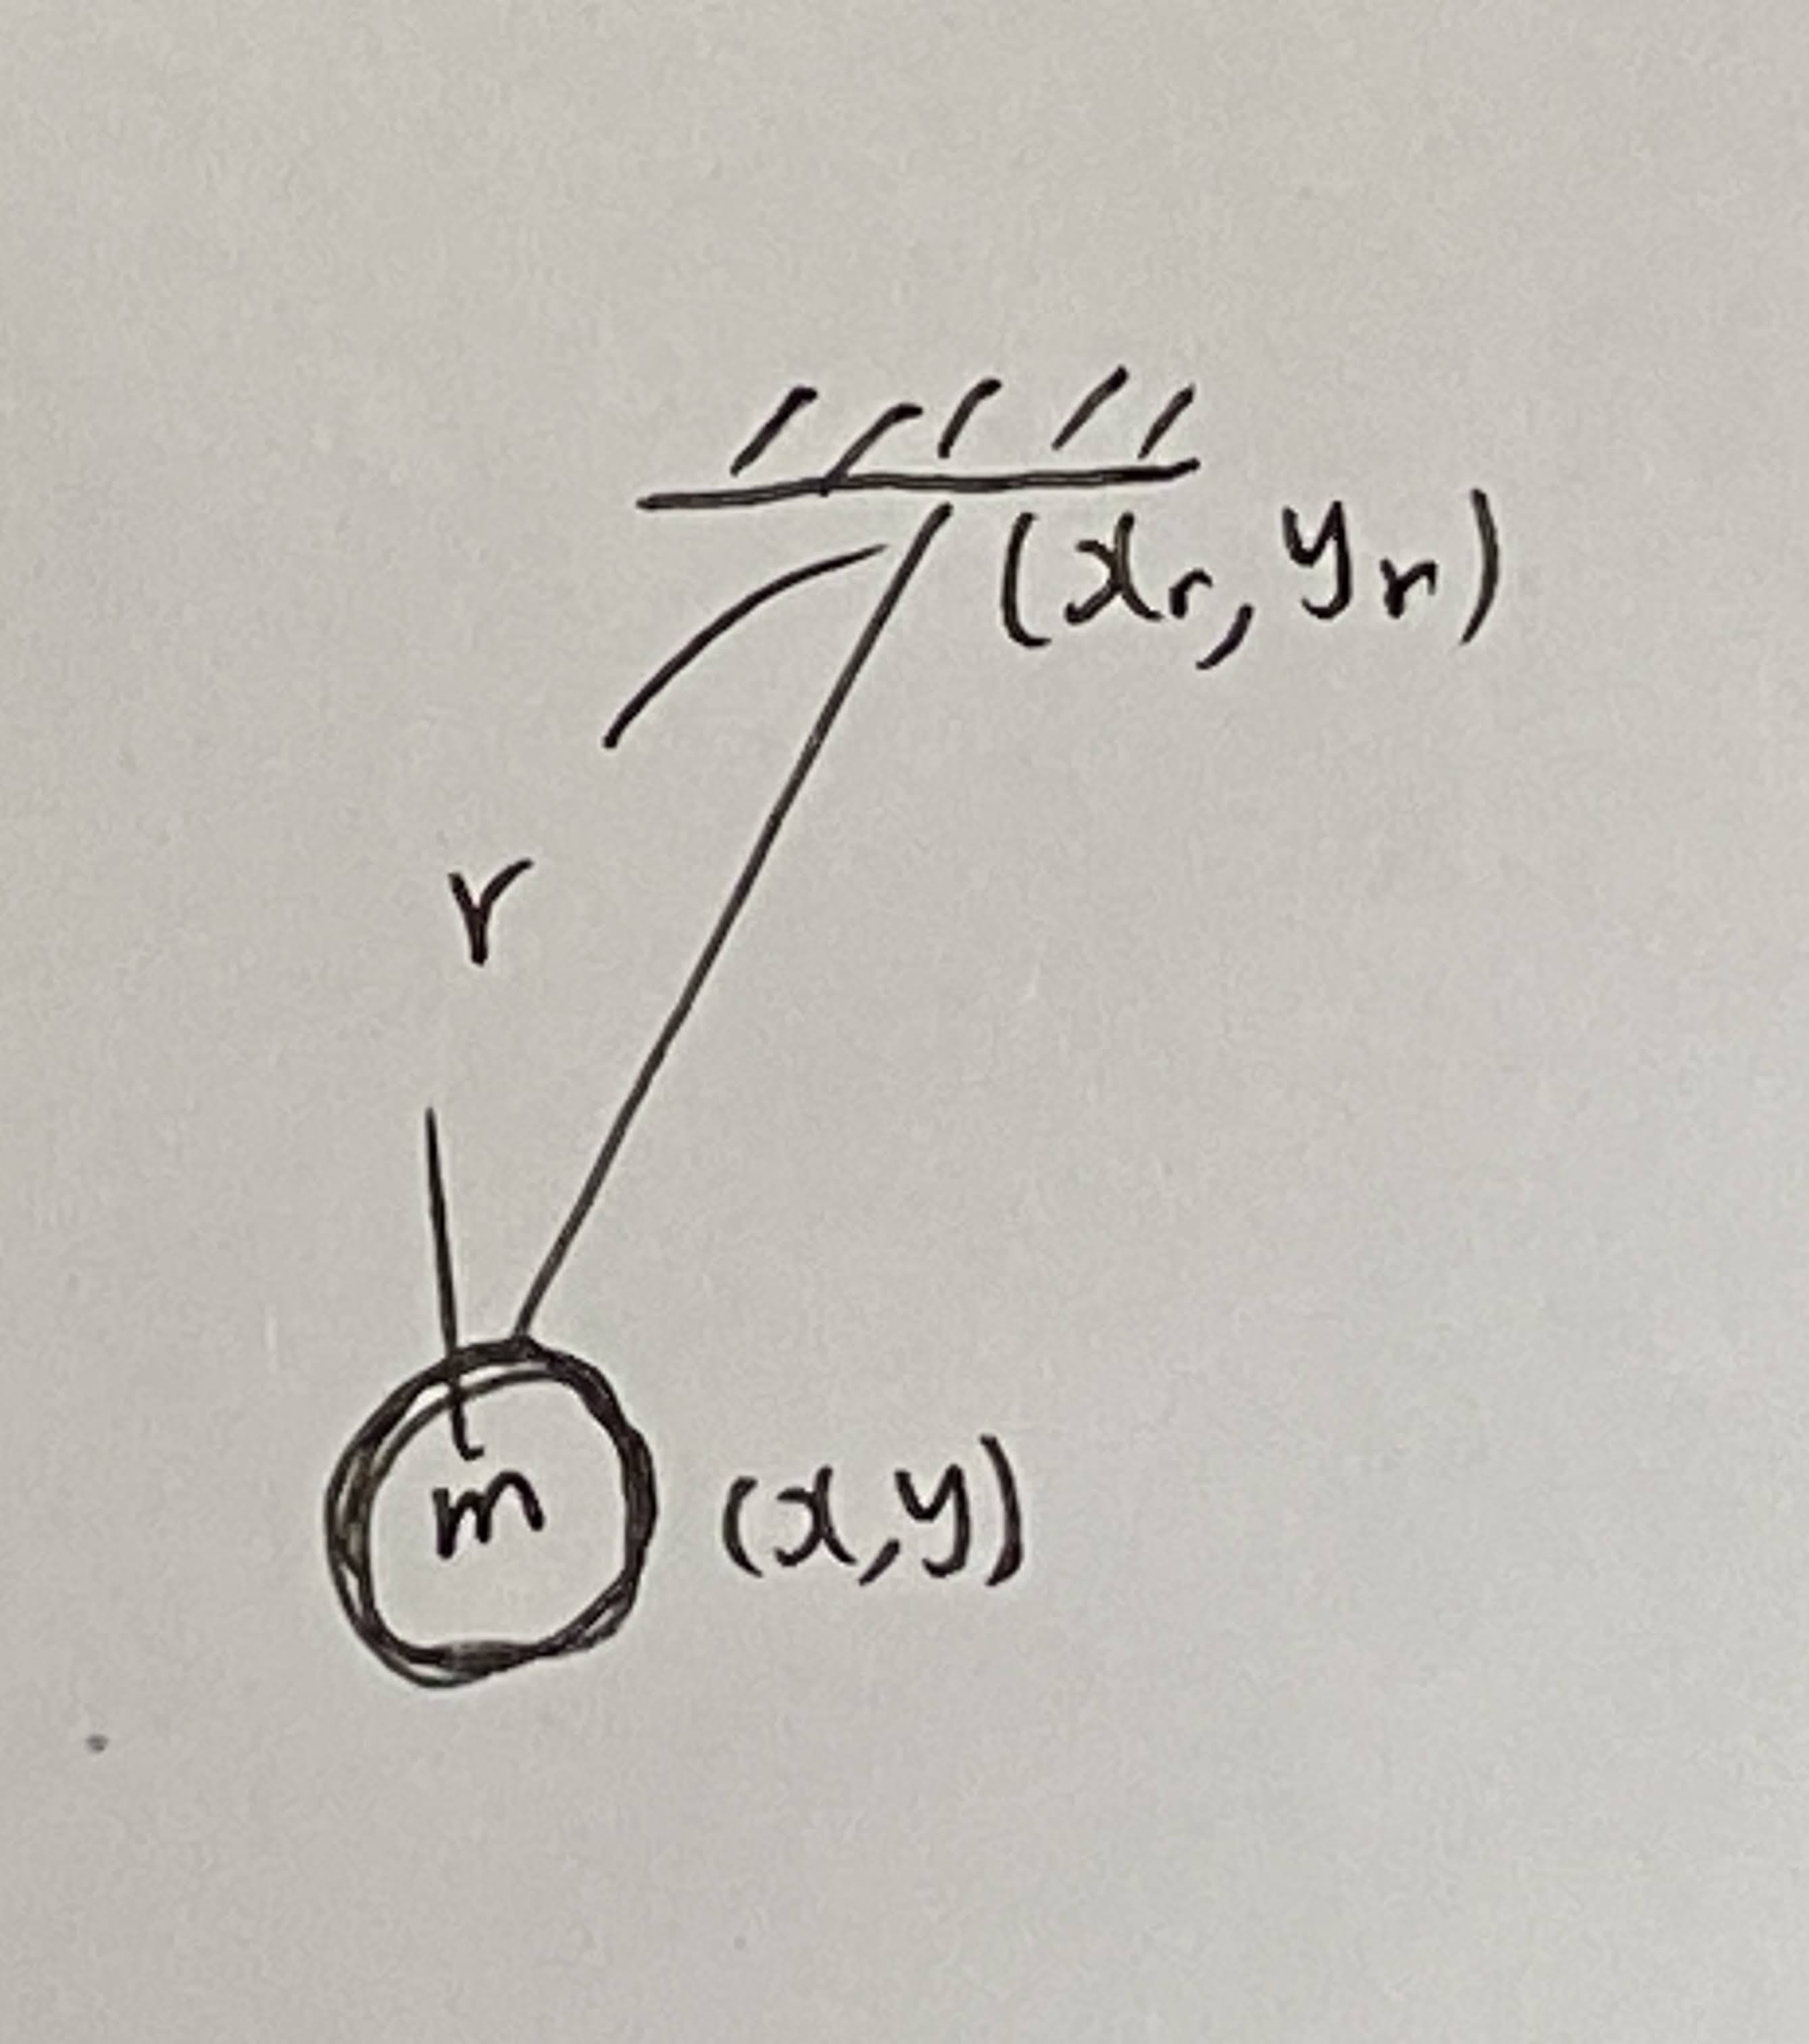 (x_r, y_r)
r
m
(x, y)